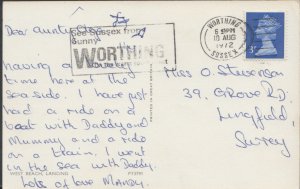 Dear Aunty
See Sussex from
Sunny
WORTHING
WORTHING
6 15PM
10 AUG
1972
SUSSEX
3P
having a
time here at the
sea side. I have just
had a ride on a
boat with Daddy and
Mummy and a ride
on a train. I went
in the sea with Daddy.
Lots of love MANDY.
Miss O Stevenson
39, GROVE RD
Lingfield
Surrey
WEST BEACH, LANCING